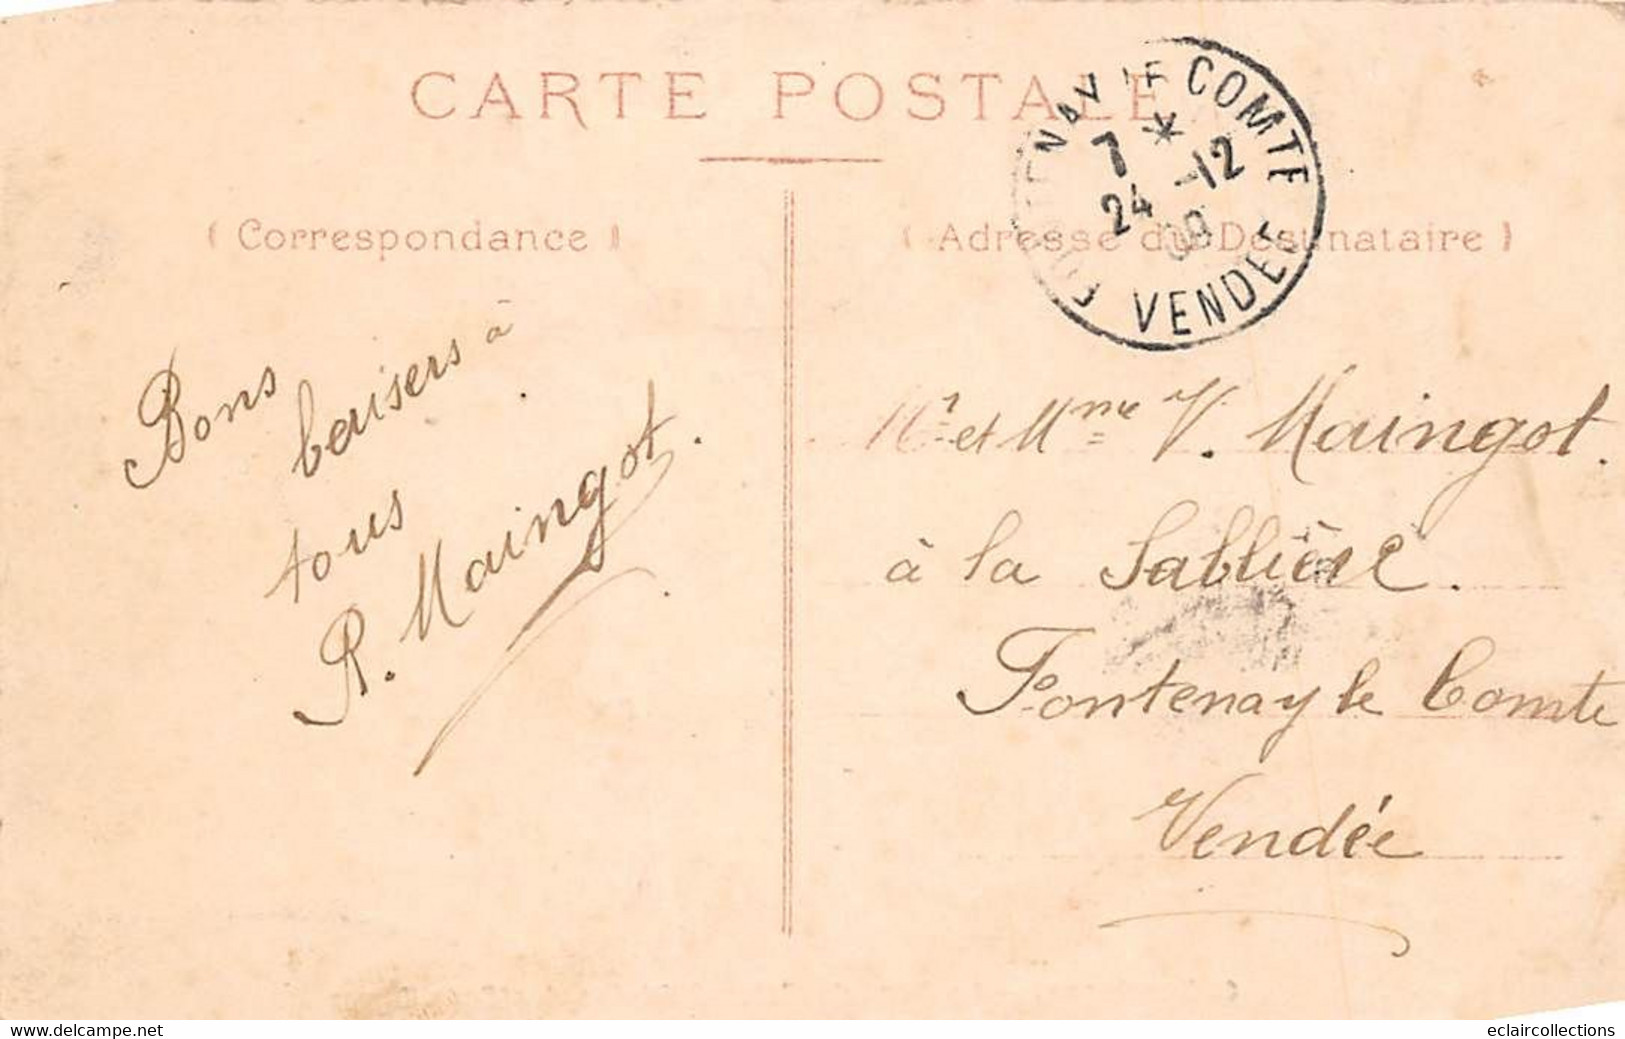 CARTE POSTALE
FONTENAY LE COMTE
7 *
24 -12
08
VENDEE
( Correspondance )
( Adresse du Destinataire )
Bons
baisers à
tous
R. Maingot.
Mr et Mme V. Maingot.
à la Sablière.
Fontenay le Comte
Vendée
eclaircollections